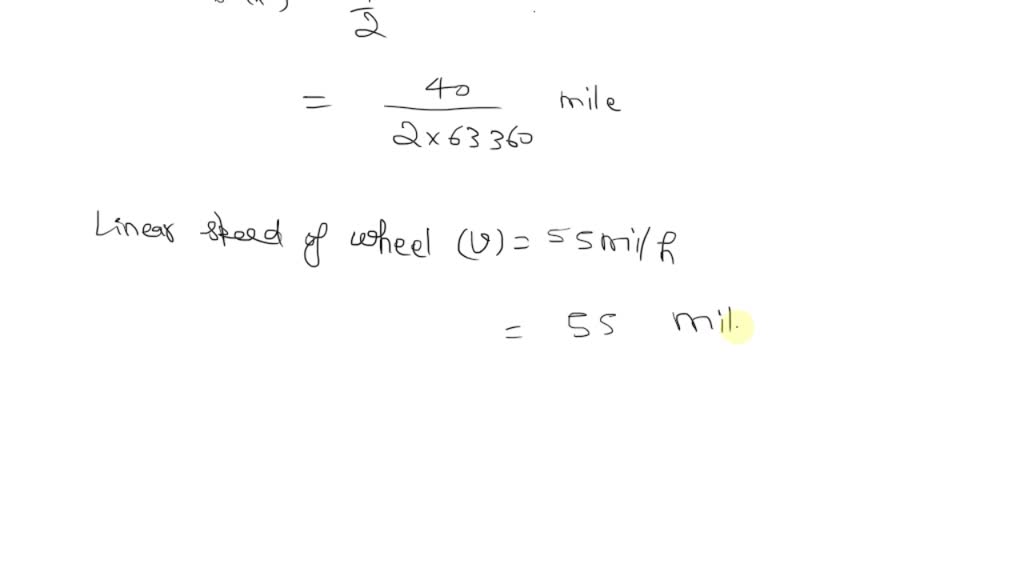 2
= 40 / 2×63360 mile
Linear speed of wheel (v) = 55mi/h
= 55 mil